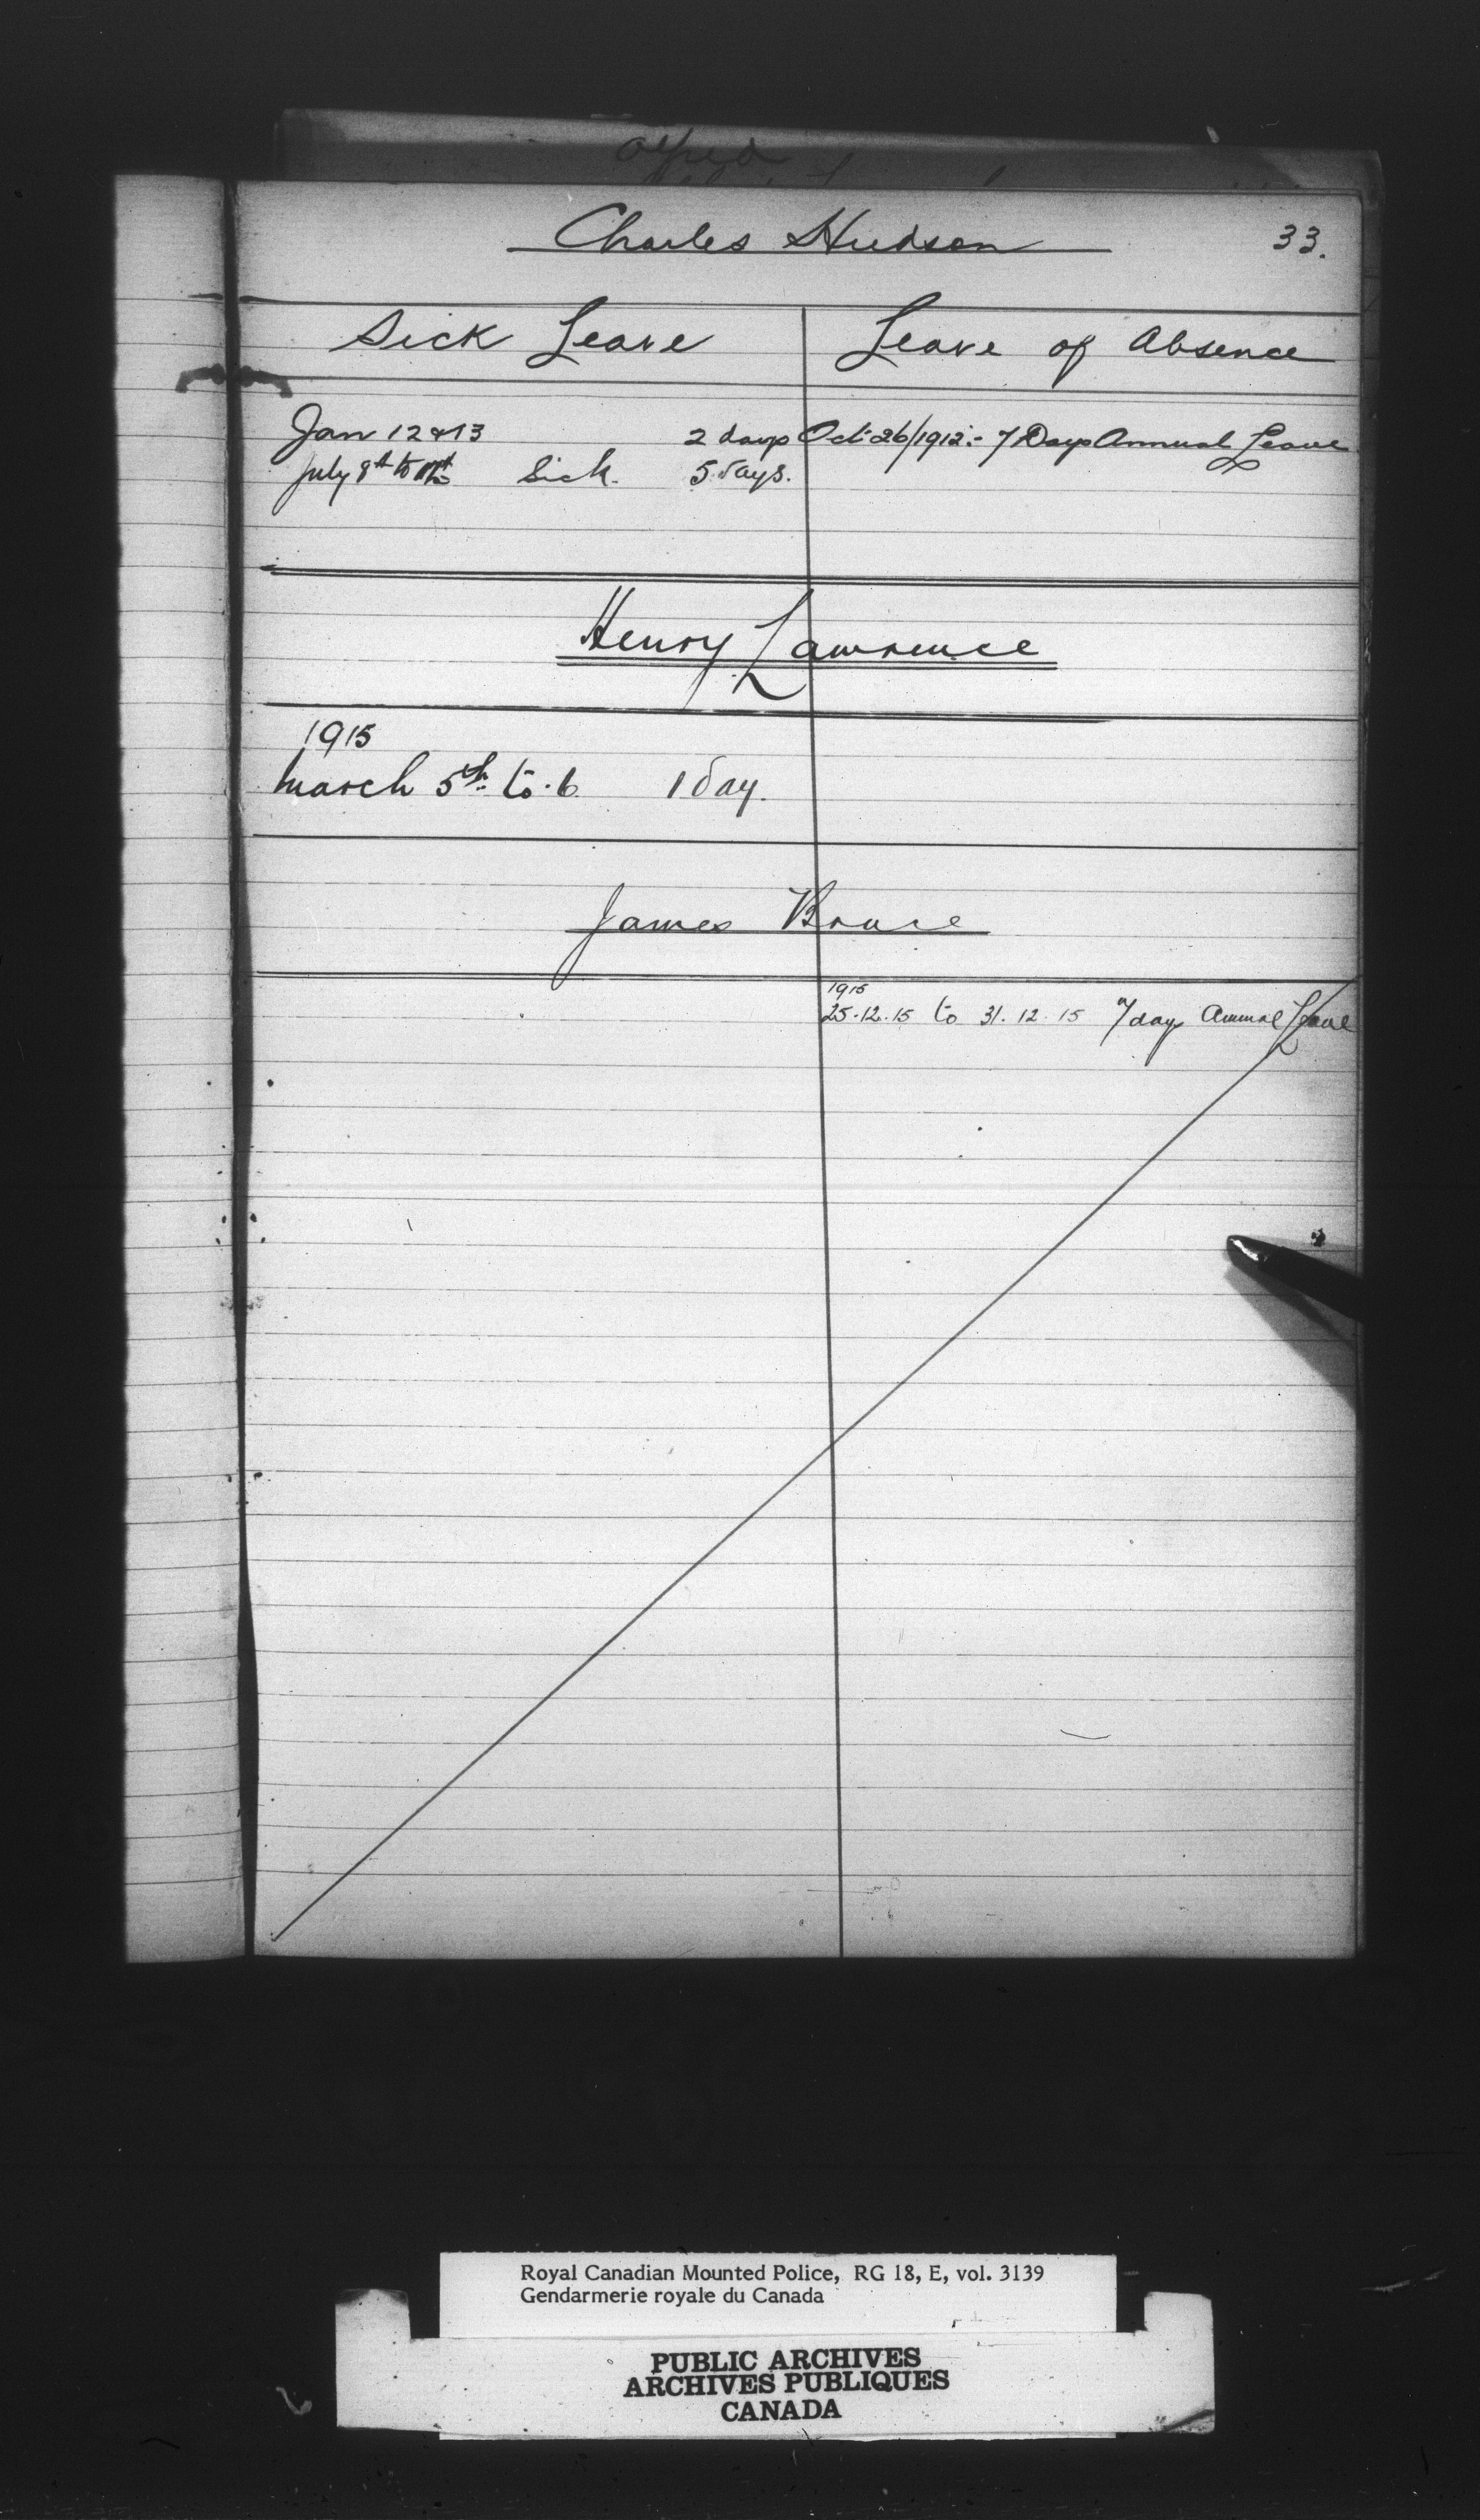 Charles Hudson
33.
Sick Leave
Leave of Absence
Jan 12 & 13 2 days
Oct 26/1912 :- 7 Days Annual Leave
July 8th to Sick. 5 days.
Henry Lawrence
1915
March 5th to. 6 1 day.
James Bruce
1915
25.12.15 to 31.12.15 7 days Annual Leave
Royal Canadian Mounted Police, RG 18, E, vol. 3139
Gendarmerie royale du Canada
PUBLIC ARCHIVES
ARCHIVES PUBLIQUES
CANADA